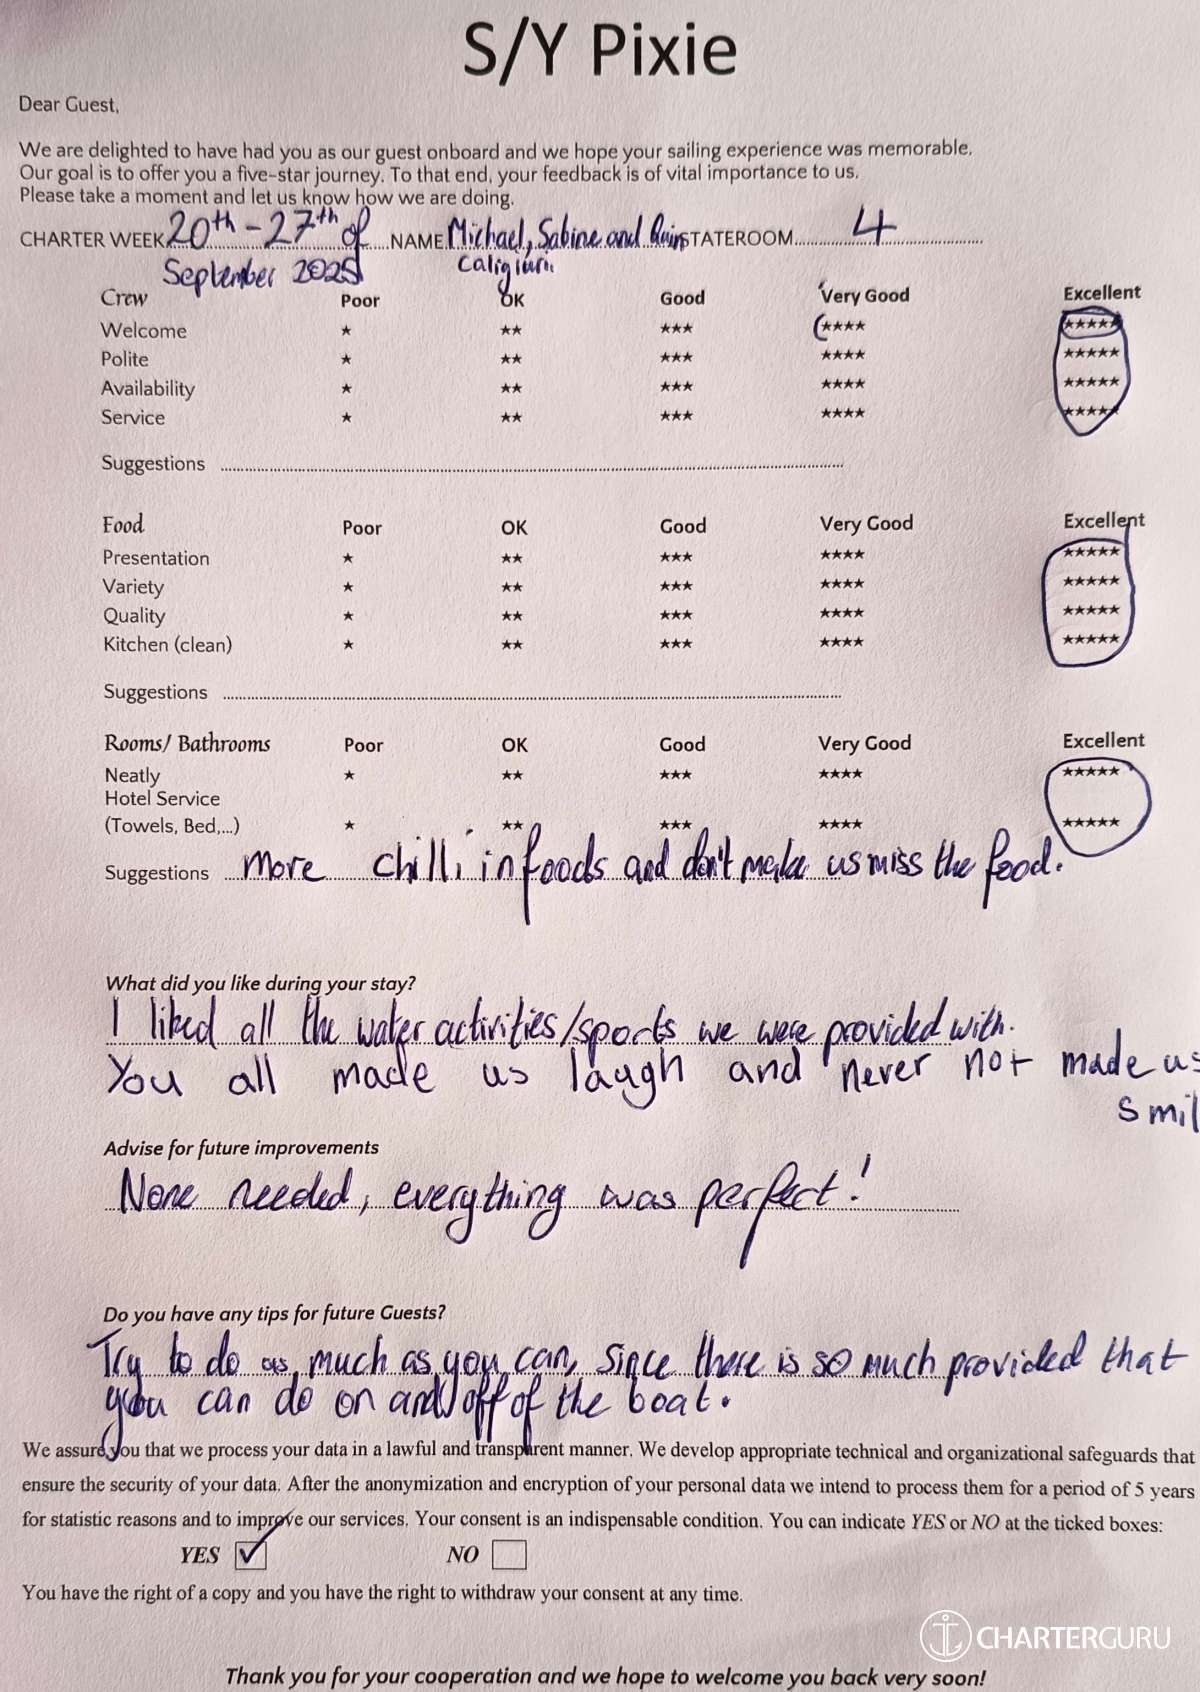 S/Y Pixie
Dear Guest,
We are delighted to have had you as our guest onboard and we hope your sailing experience was memorable.
Our goal is to offer you a five-star journey. To that end, your feedback is of vital importance to us.
Please take a moment and let us know how we are doing.
CHARTER WEEK 20th - 27th of NAME Michael, Sabine and STATEROOM 4
September 2025
Crew Poor OK Good Very Good Excellent
Welcome ★ ★★ ★★★ ★★★★ ★★★★★
Polite ★ ★★ ★★★ ★★★★ ★★★★★
Availability ★ ★★ ★★★ ★★★★ ★★★★★
Service ★ ★★ ★★★ ★★★★ ★★★★★
Suggestions
Food Poor OK Good Very Good Excellent
Presentation ★ ★★ ★★★ ★★★★ ★★★★★
Variety ★ ★★ ★★★ ★★★★ ★★★★★
Quality ★ ★★ ★★★ ★★★★ ★★★★★
Kitchen (clean) ★ ★★ ★★★ ★★★★ ★★★★★
Suggestions
Rooms/ Bathrooms Poor OK Good Very Good Excellent
Neatly ★ ★★ ★★★ ★★★★ ★★★★★
Hotel Service
(Towels, Bed,...) ★ ★★ ★★★ ★★★★ ★★★★★
Suggestions more chilli in foods and don't make us miss the food.
What did you like during your stay?
I liked all the water activities/sports we were provided with.
You all made us laugh and never not made us
smil
Advise for future improvements
None needed, everything was perfect!
Do you have any tips for future Guests?
Try to do as much as you can, since there is so much provided that
you can do on and/off of the boat.
We assure you that we process your data in a lawful and transparent manner. We develop appropriate technical and organizational safeguards that
ensure the security of your data. After the anonymization and encryption of your personal data we intend to process them for a period of 5 years
for statistic reasons and to improve our services. Your consent is an indispensable condition. You can indicate YES or NO at the ticked boxes:
YES NO
You have the right of a copy and you have the right to withdraw your consent at any time.
CHARTERGURU
Thank you for your cooperation and we hope to welcome you back very soon!